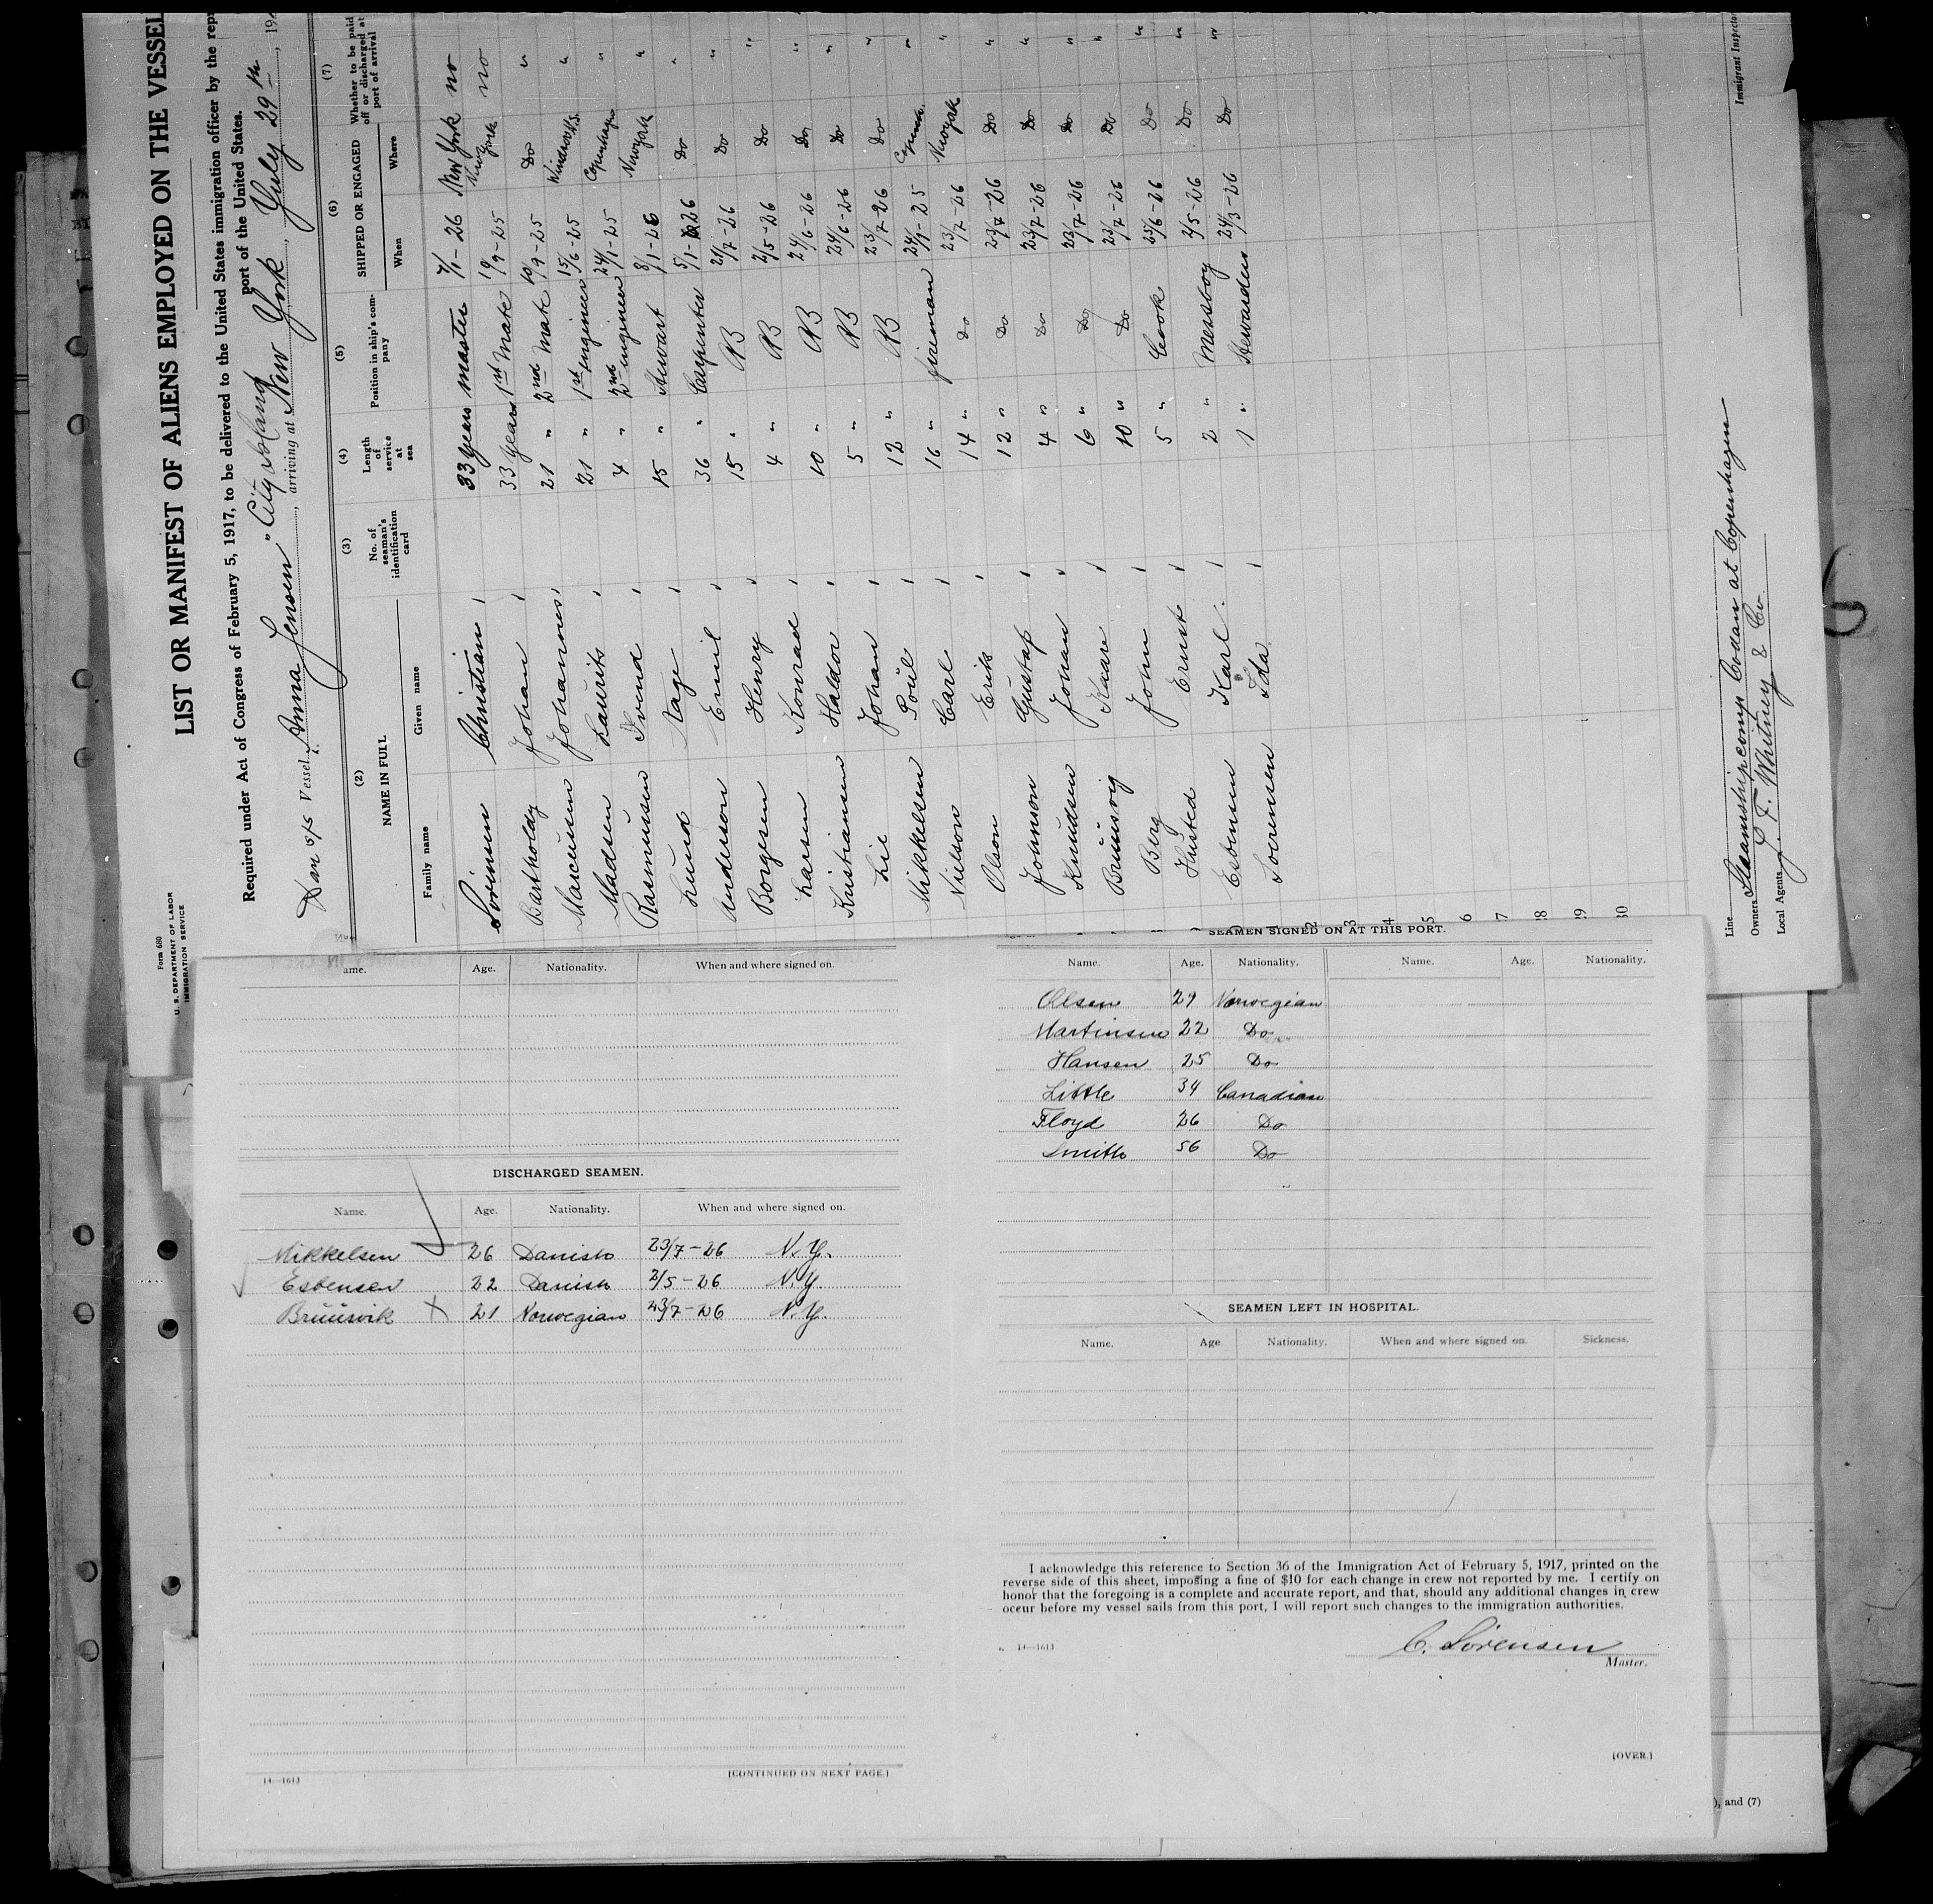 Form 680
U. S. DEPARTMENT OF LABOR
IMMIGRATION SERVICE
LIST OR MANIFEST OF ALIENS EMPLOYED ON THE VESSEL
Required under Act of Congress of February 5, 1917, to be delivered to the United States immigration officer by the rep
port of the United States.
Dan s/s Vessel Anna Jensen arriving at New York, July 29th, 192
(2) (3) (4) (5) (6) (7)
NAME IN FULL
No. of seaman's identification card
Length of service at sea
Position in ship's company
SHIPPED OR ENGAGED
Whether to be paid off or discharged at port of arrival
Family name Given name When Where
Sörensen Christian 33 years master 7/1-26 New York no
Bartholdy Johan 33 years 1st Mate 19/9-25 New York no
Marcussen Johannes 21 " 2nd Mate 10/9-25 Do "
Madsen Laurits 21 " 1st engineer 15/6-25 Windsor N.S. "
Rasmussen Svend 4 " 2nd engineer 24/1-25 Copenhagen "
Lund Aage 15 " Stewart 8/1-26 Newyork "
Anderson Emil 36 " Carpenter 5/1-26 Do "
Borgesen Henry 15 " AB 21/7-26 Do "
Larsen Konrad 4 " AB 2/5-26 Do "
Kristiansen Haldor 10 " AB 24/6-26 Do "
Lie Johan 5 " AB 24/6-26 Do "
Mikkelsen Poul 12 " AB 23/7-26 Do "
Nielson Carl 16 " fireman 24/1-25 "
Olson Erik 14 " Do 23/7-26 Newyork "
Johnson Gustaf 12 " Do 23/7-26 Do "
Knudsen Johan 4 " Do 23/7-26 Do "
Bruusvig Kaare 6 " Do 23/7-26 Do "
Berg John 10 " Do 23/7-26 Do "
Husted Ernst 5 " Cook 25/6-26 Do "
Esbensen Karl 2 " Messboy 2/5-26 Do "
Sorensen Ida 1 " Stewardess 24/3-26 Do "
2
3
4
5
6
7
8
9
30
Line
Owners Steamshipcomp Codan at Copenhagen
Local Agents J. F. Whitney & Co
Immigrant Inspector
ame. Age. Nationality. When and where signed on.
DISCHARGED SEAMEN.
Name. Age. Nationality. When and where signed on.
Mikkelsen 26 Danish 23/7-26 N.Y.
Esbensen 22 Danish 2/5-26 N.Y.
Bruusvik X 21 Norwegian 23/7-26 N.Y.
14—1613
[CONTINUED ON NEXT PAGE.]
SEAMEN SIGNED ON AT THIS PORT.
Name. Age. Nationality. Name. Age. Nationality.
Olsen 29 Norwegian
Martinsen 22 Do
Hansen 25 Do
Little 34 Canadian
Floyd 26 Do
Smith 56 Do
SEAMEN LEFT IN HOSPITAL.
Name. Age Nationality. When and where signed on. Sickness.
I acknowledge this reference to Section 36 of the Immigration Act of February 5, 1917, printed on the
reverse side of this sheet, imposing a fine of $10 for each change in crew not reported by me. I certify on
honor that the foregoing is a complete and accurate report, and that, should any additional changes in crew
occur before my vessel sails from this port, I will report such changes to the immigration authorities.
14—1613
C. Sörensen
Master.
[OVER.]
), and (7)